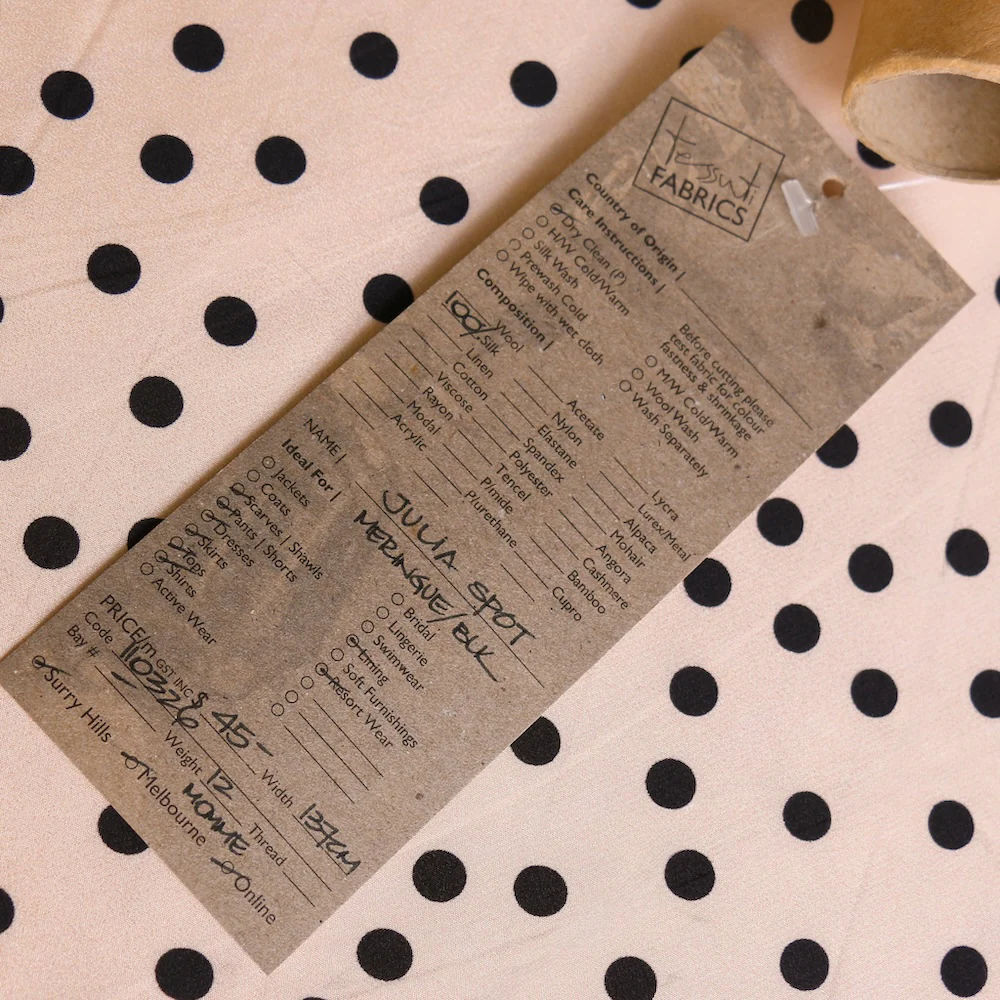 Tessuti
FABRICS
Country of Origin |
Care Instructions |
Dry Clean (P)
H/W Cold/Warm
Silk Wash
Prewash Cold
Wipe with wet cloth
Before cutting please
test fabric for colour
fastness & shrinkage
M/W Cold/Warm
Wool Wash
Wash Separately
Composition |
Wool
100% Silk
Linen
Cotton
Viscose
Rayon
Modal
Acrylic
Acetate
Nylon
Elastane
Spandex
Polyester
Tencel
P/mide
P/urethane
Lycra
Lurex/Metal
Alpaca
Mohair
Angora
Cashmere
Bamboo
Cupro
NAME | JULIA SPOT
MERINGUE/BLK
Ideal For |
Jackets
Coats
Scarves | Shawls
Pants | Shorts
Dresses
Skirts
Tops
Shirts
Active Wear
Bridal
Lingerie
Swimwear
Lining
Soft Furnishings
Resort Wear
PRICE/m GST INC $ 45-
Code 1103326 Width 137cm
Bay # Weight 12 MOMME Thread
Surry Hills Melbourne Online